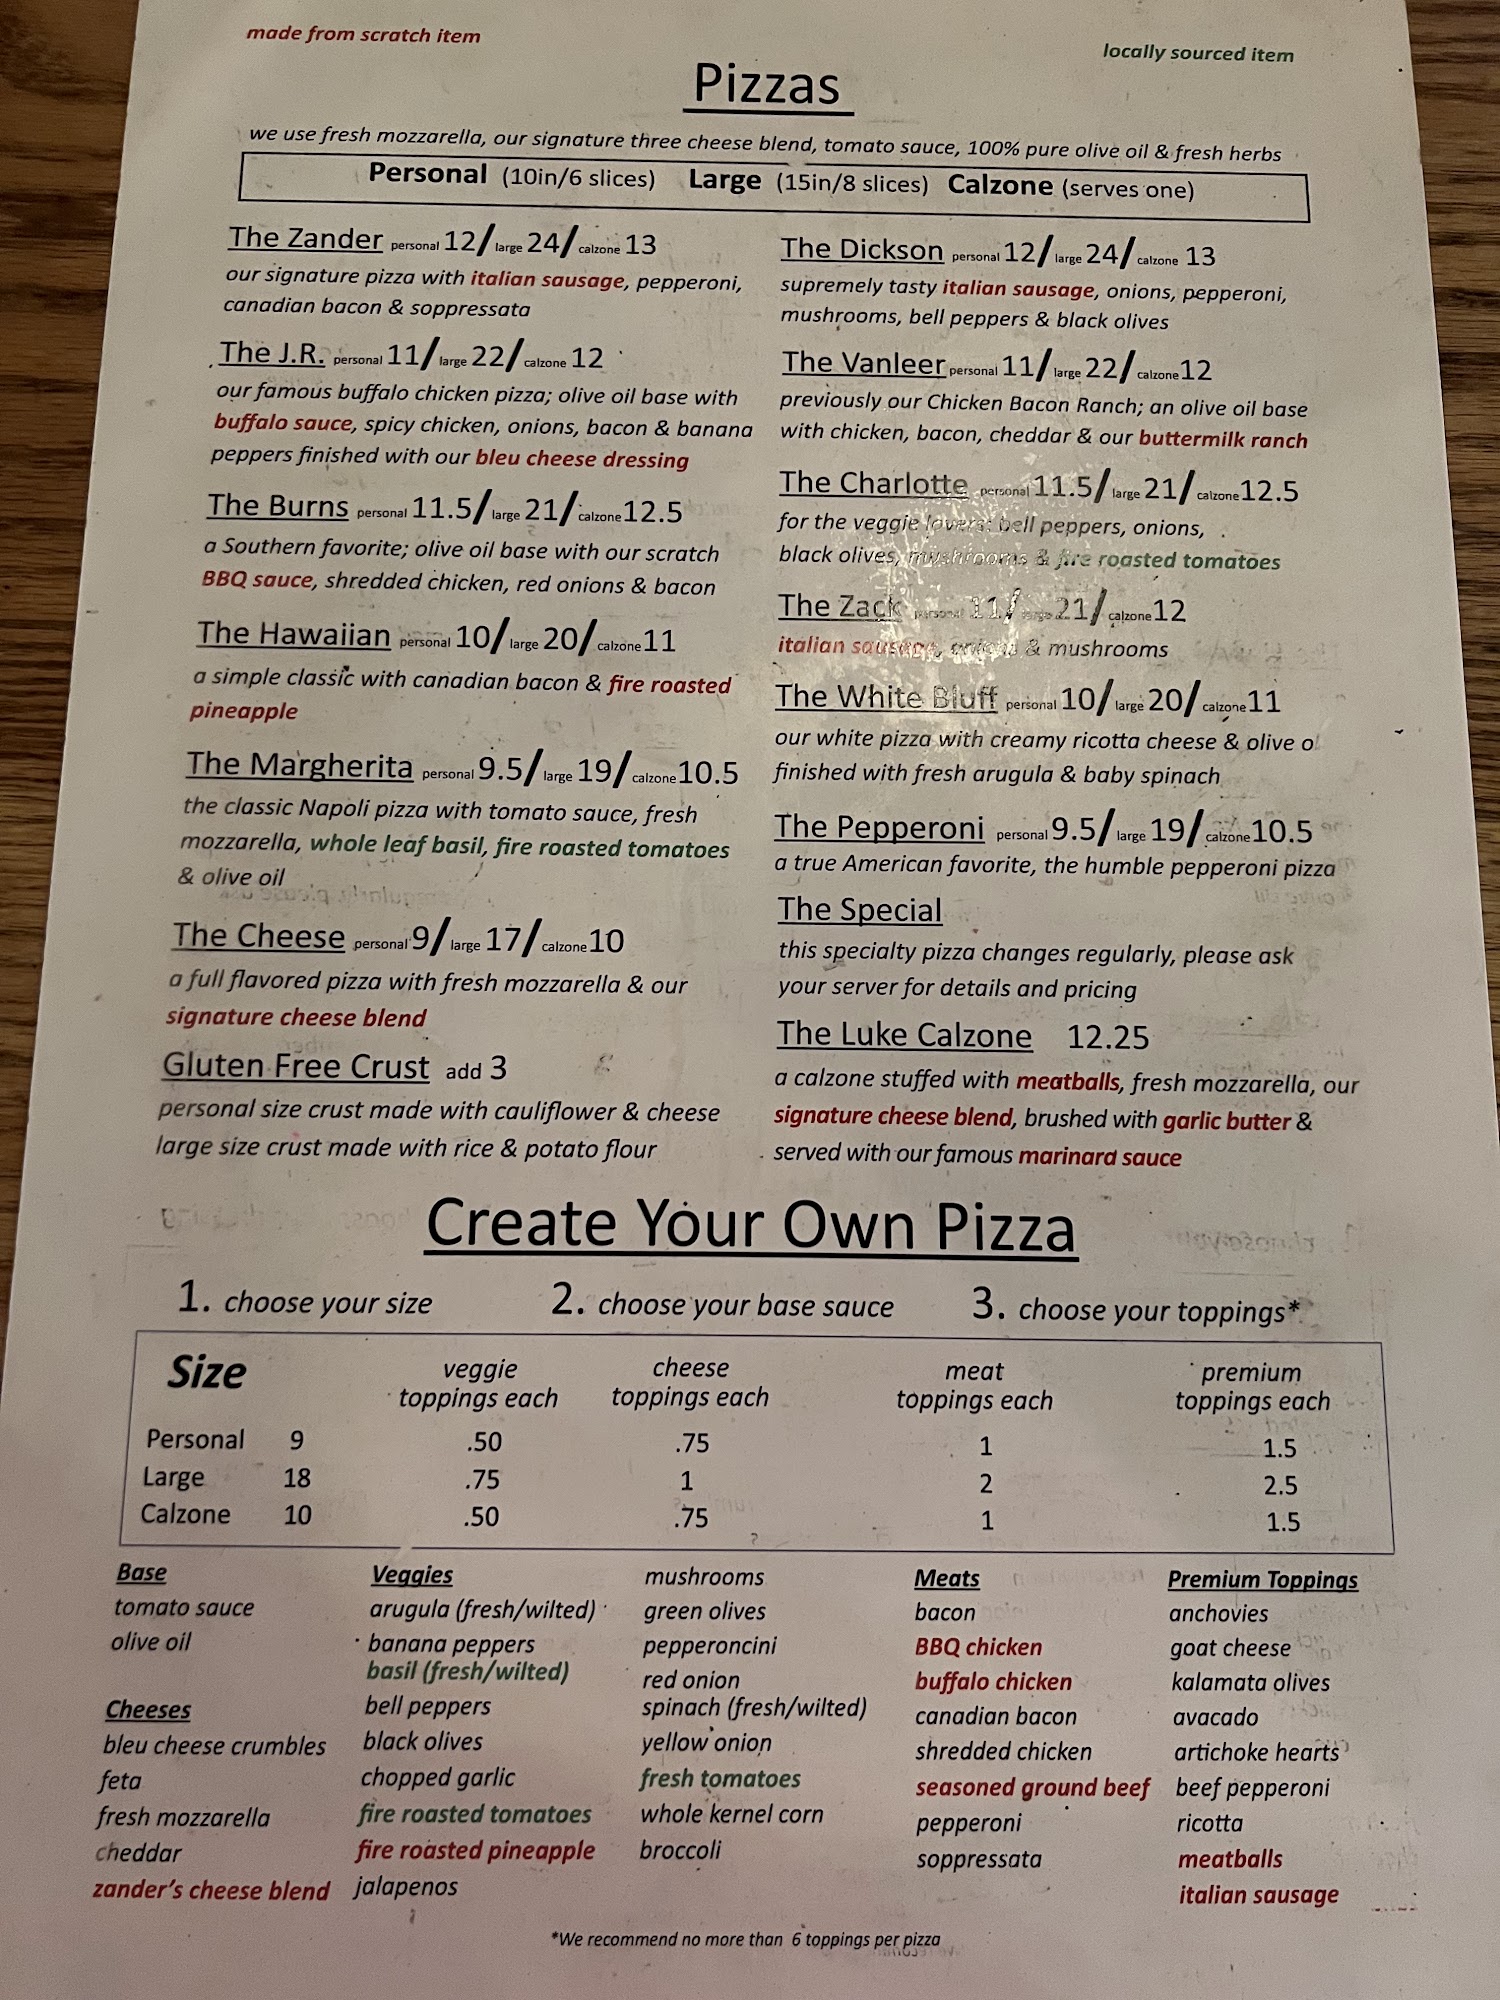 made from scratch item
locally sourced item
Pizzas
we use fresh mozzarella, our signature three cheese blend, tomato sauce, 100% pure olive oil & fresh herbs
Personal (10in/6 slices) Large (15in/8 slices) Calzone (serves one)
The Zander personal 12/ large 24/ calzone 13
our signature pizza with italian sausage, pepperoni,
canadian bacon & soppressata
The J.R. personal 11/ large 22/ calzone 12
our famous buffalo chicken pizza; olive oil base with
buffalo sauce, spicy chicken, onions, bacon & banana
peppers finished with our bleu cheese dressing
The Burns personal 11.5/ large 21/ calzone 12.5
a Southern favorite; olive oil base with our scratch
BBQ sauce, shredded chicken, red onions & bacon
The Hawaiian personal 10/ large 20/ calzone 11
a simple classic with canadian bacon & fire roasted
pineapple
The Margherita personal 9.5/ large 19/ calzone 10.5
the classic Napoli pizza with tomato sauce, fresh
mozzarella, whole leaf basil, fire roasted tomatoes
& olive oil
The Cheese personal 9/ large 17/ calzone 10
a full flavored pizza with fresh mozzarella & our
signature cheese blend
Gluten Free Crust add 3
personal size crust made with cauliflower & cheese
large size crust made with rice & potato flour
The Dickson personal 12/ large 24/ calzone 13
supremely tasty italian sausage, onions, pepperoni,
mushrooms, bell peppers & black olives
The Vanleer personal 11/ large 22/ calzone 12
previously our Chicken Bacon Ranch; an olive oil base
with chicken, bacon, cheddar & our buttermilk ranch
The Charlotte personal 11.5/ large 21/ calzone 12.5
for the veggie lovers: bell peppers, onions,
black olives, mushrooms & fire roasted tomatoes
The Zack personal 11/ large 21/ calzone 12
italian sausage, onions & mushrooms
The White Bluff personal 10/ large 20/ calzone 11
our white pizza with creamy ricotta cheese & olive
finished with fresh arugula & baby spinach
The Pepperoni personal 9.5/ large 19/ calzone 10.5
a true American favorite, the humble pepperoni pizza
The Special
this specialty pizza changes regularly, please ask
your server for details and pricing
The Luke Calzone 12.25
a calzone stuffed with meatballs, fresh mozzarella, our
signature cheese blend, brushed with garlic butter &
served with our famous marinard sauce
Create Your Own Pizza
1. choose your size 2. choose your base sauce 3. choose your toppings*
Size veggie toppings each cheese toppings each meat toppings each premium toppings each
Personal 9 .50 .75 1 1.5
Large 18 .75 1 2 2.5
Calzone 10 .50 .75 1 1.5
Base
tomato sauce
olive oil
Cheeses
bleu cheese crumbles
feta
fresh mozzarella
cheddar
zander's cheese blend
Veggies
arugula (fresh/wilted)
banana peppers
basil (fresh/wilted)
bell peppers
black olives
chopped garlic
fire roasted tomatoes
fire roasted pineapple
jalapenos
mushrooms
green olives
pepperoncini
red onion
spinach (fresh/wilted)
yellow onion
fresh tomatoes
whole kernel corn
broccoli
Meats
bacon
BBQ chicken
buffalo chicken
canadian bacon
shredded chicken
seasoned ground beef
pepperoni
soppressata
Premium Toppings
anchovies
goat cheese
kalamata olives
avacado
artichoke hearts
beef pepperoni
ricotta
meatballs
italian sausage
*We recommend no more than 6 toppings per pizza